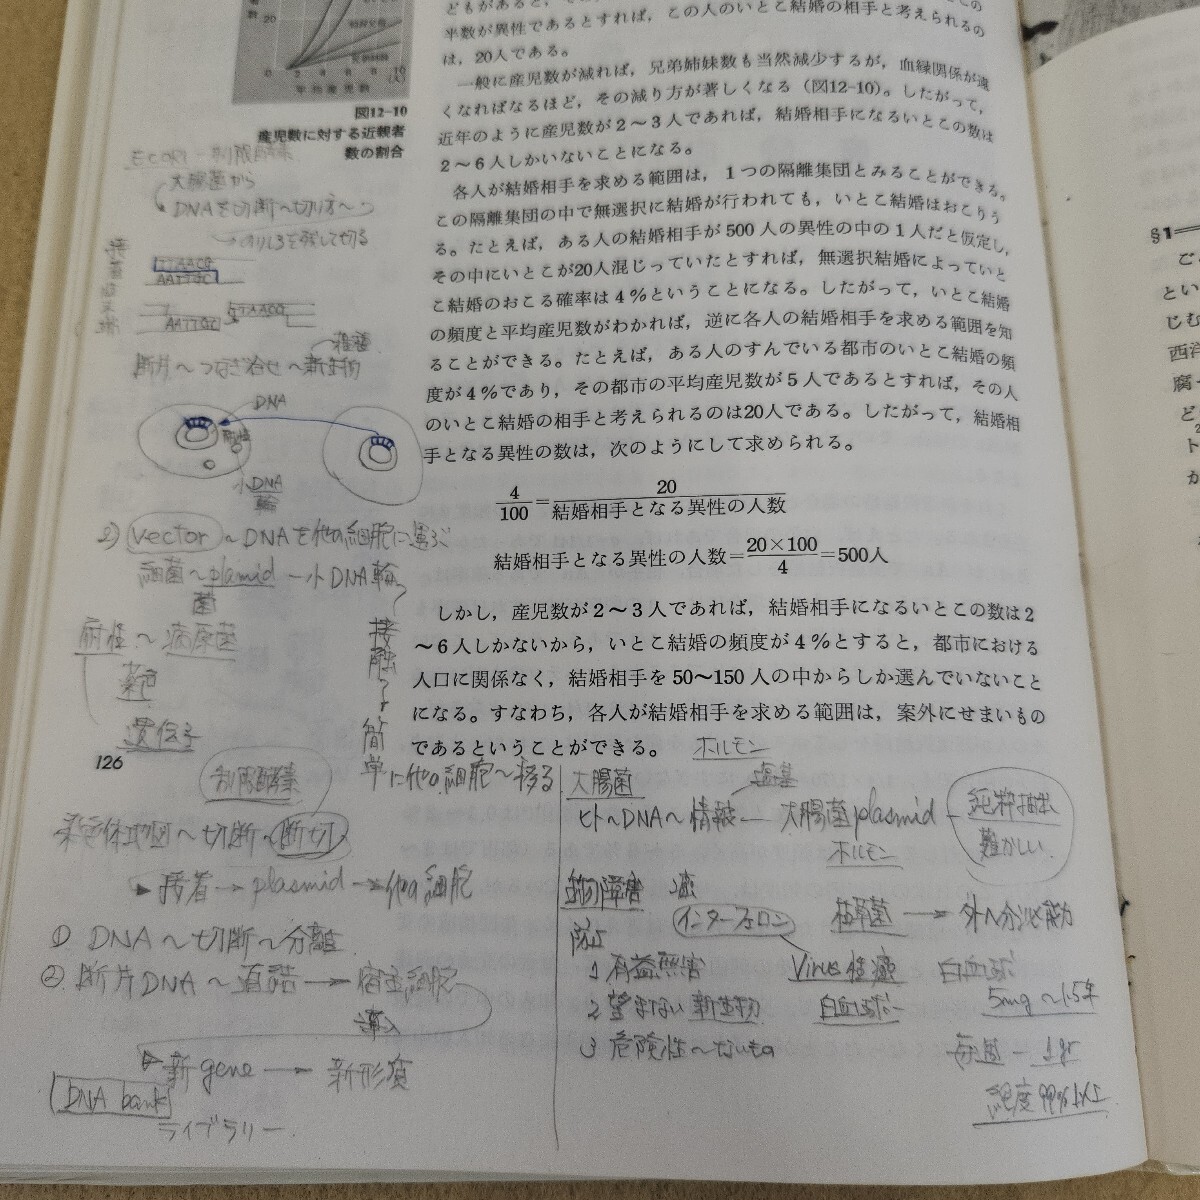 半数が異性であるとすれば，この人のいとこ結婚の相手と考えられるの
は，20人である。
一般に産児数が減れば，兄弟姉妹数も当然減少するが，血縁関係が遠
くなればなるほど，その減り方が著しくなる（図12-10）。したがって，
近年のように産児数が2〜3人であれば，結婚相手になるいとこの数は
2〜6人しかいないことになる。
各人が結婚相手を求める範囲は，1つの隔離集団とみることができる。
この隔離集団の中で無選択に結婚が行われても，いとこ結婚はおこりう
る。たとえば，ある人の結婚相手が500人の異性の中の1人だと仮定し，
その中にいとこが20人混じっていたとすれば，無選択結婚によっていと
こ結婚のおこる確率は4％ということになる。したがって，いとこ結婚
の頻度と平均産児数がわかれば，逆に各人の結婚相手を求める範囲を知
ることができる。たとえば，ある人のすんでいる都市のいとこ結婚の頻
度が4％であり，その都市の平均産児数が5人であるとすれば，その人
のいとこ結婚の相手と考えられるのは20人である。したがって，結婚相
手となる異性の数は，次のようにして求められる。
4/100＝20/結婚相手となる異性の人数
結婚相手となる異性の人数＝20×100/4＝500人
しかし，産児数が2〜3人であれば，結婚相手になるいとこの数は2
〜6人しかないから，いとこ結婚の頻度が4％とすると，都市における
人口に関係なく，結婚相手を50〜150人の中からしか選んでいないこと
になる。すなわち，各人が結婚相手を求める範囲は，案外にせまいもの
であるということができる。
20
0 2 4 6 8 10
(人)
平均産児数
図12-10
産児数に対する近親者
数の割合
大腸菌から
DNAを切断〜切り方〜
TTAACG
AATTGC
断片〜つなぎ合せ〜新生物
DNA
小DNA
輪
2) vector 〜DNAを他の細胞に運ぶ
細菌〜plamid ー小DNA輪
菌
耐性〜病原菌
遺伝子
接触〜簡単に他の細胞〜移る
126
制限酵素
染色体地図〜切断・断切
接着→plasmid→他の細胞
① DNA〜切断〜分離
② 断片DNA〜直結→宿主細胞
導入
新gene→新形質
DNA bank
ライブラリー
ホルモン
大腸菌
塩基
ヒト〜DNA〜情報ー大腸菌plasmid
ホルモン
純粋抽出
難かしい
インターフェロン
枯草菌→外へ分泌能力
1 有益無害
Virus
白血球
2 望まない新生物
白血球
5mg〜1.5年
3 危険性〜ないもの
純度99%以上
§1